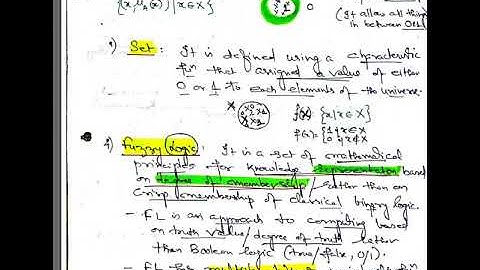 {x, μA(x) | x ∈ X}
0
(It allow all things
in between 0&1)
1) Set: It is defined using a charecteristic
fⁿ that assigned a value of either
0 or 1 to each elements of the universe.
f(x) {x | x ∈ X}
f(x) = {1 if x ∈ X
0 if x ∉ X
2) Fuzzy Logic: It is a set of mathematical
principles for knowledge representation based
on degree of membership rather than on
crisp membership of classical binary logic.
- FL is an approach to computing based
on truth value/degree of truth
than Boolean logic (true/false, 0/1).
- FL